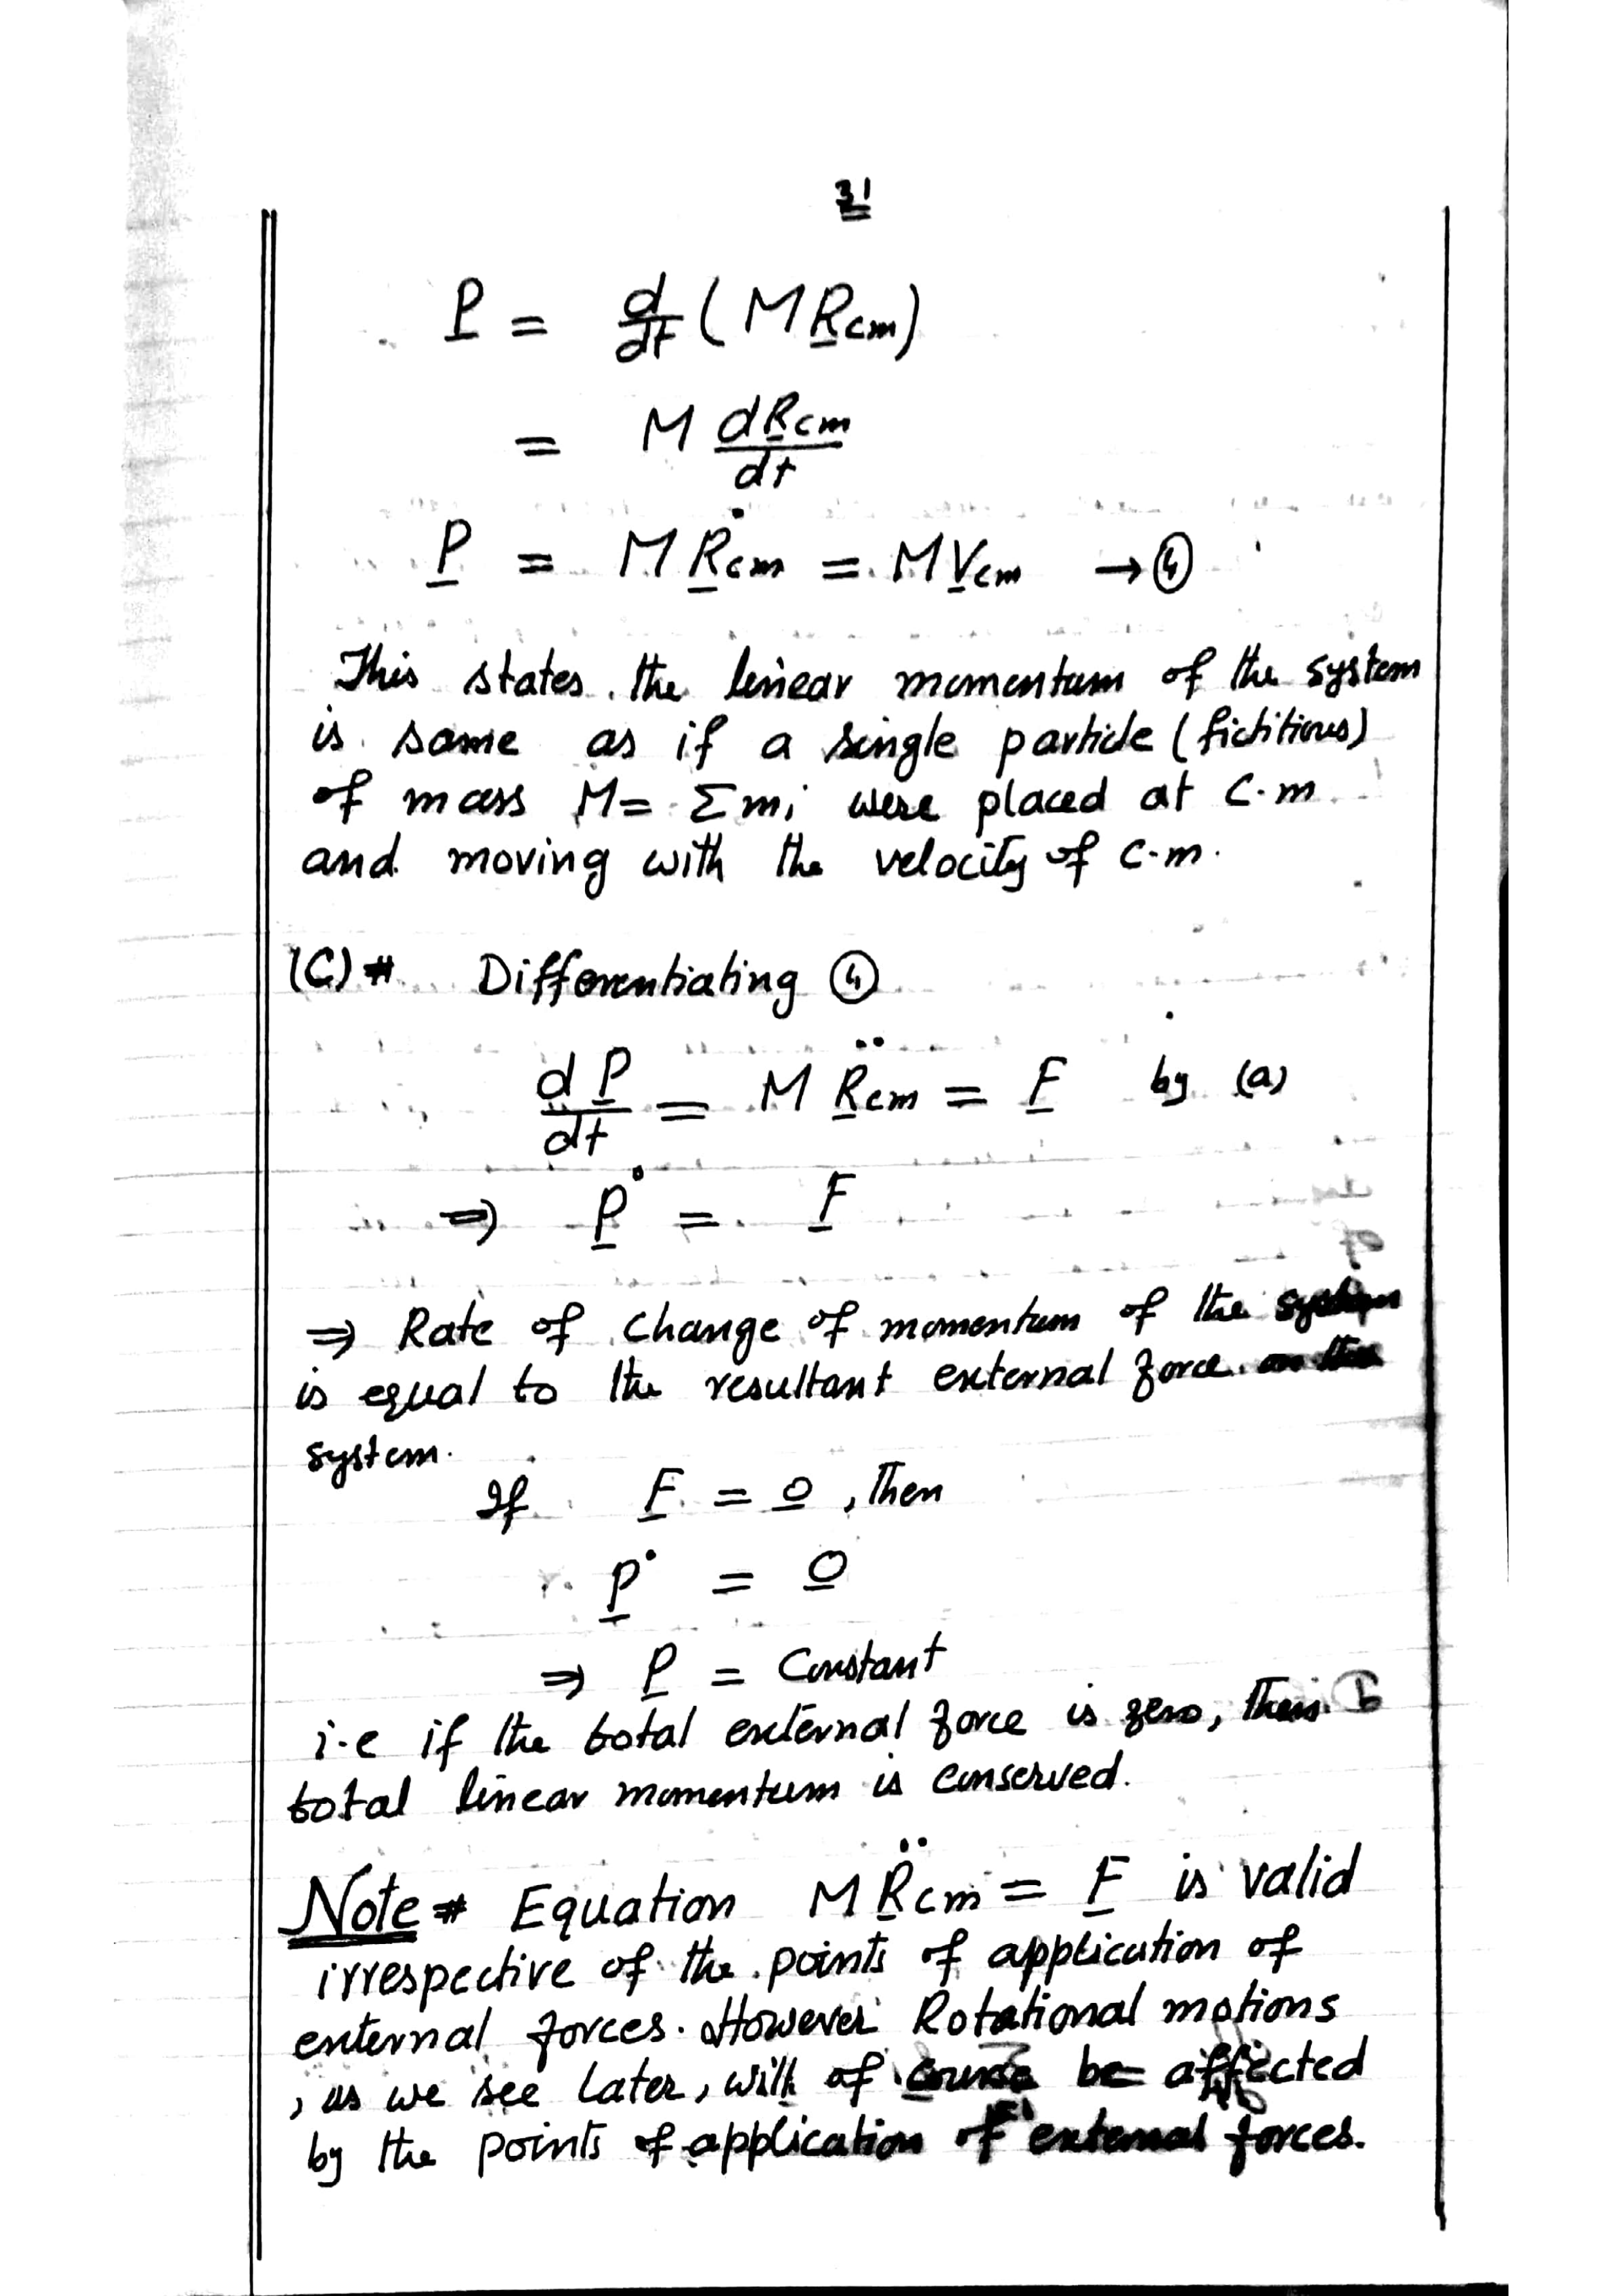 31
P = d/dt (M Rcm)
= M dRcm/dt
P = M Ṙcm = M Vcm → ④
This states the linear momentum of the system
is same as if a single particle (fictitious)
of mass M = Σmi were placed at C.m
and moving with the velocity of C.m.
(C)# Differentiating ④
dP/dt = M R̈cm = F by (a)
⇒ Ṗ = F
⇒ Rate of change of momentum of the system
is equal to the resultant external force on the
system.
If F = 0, Then
Ṗ = 0
⇒ P = Constant
i.e if the total external force is zero, then
total linear momentum is conserved.
Note # Equation M R̈cm = F is valid
irrespective of the points of application of
external forces. However Rotational motions
, as we see Later, will of course be affected
by the points of application of external forces.